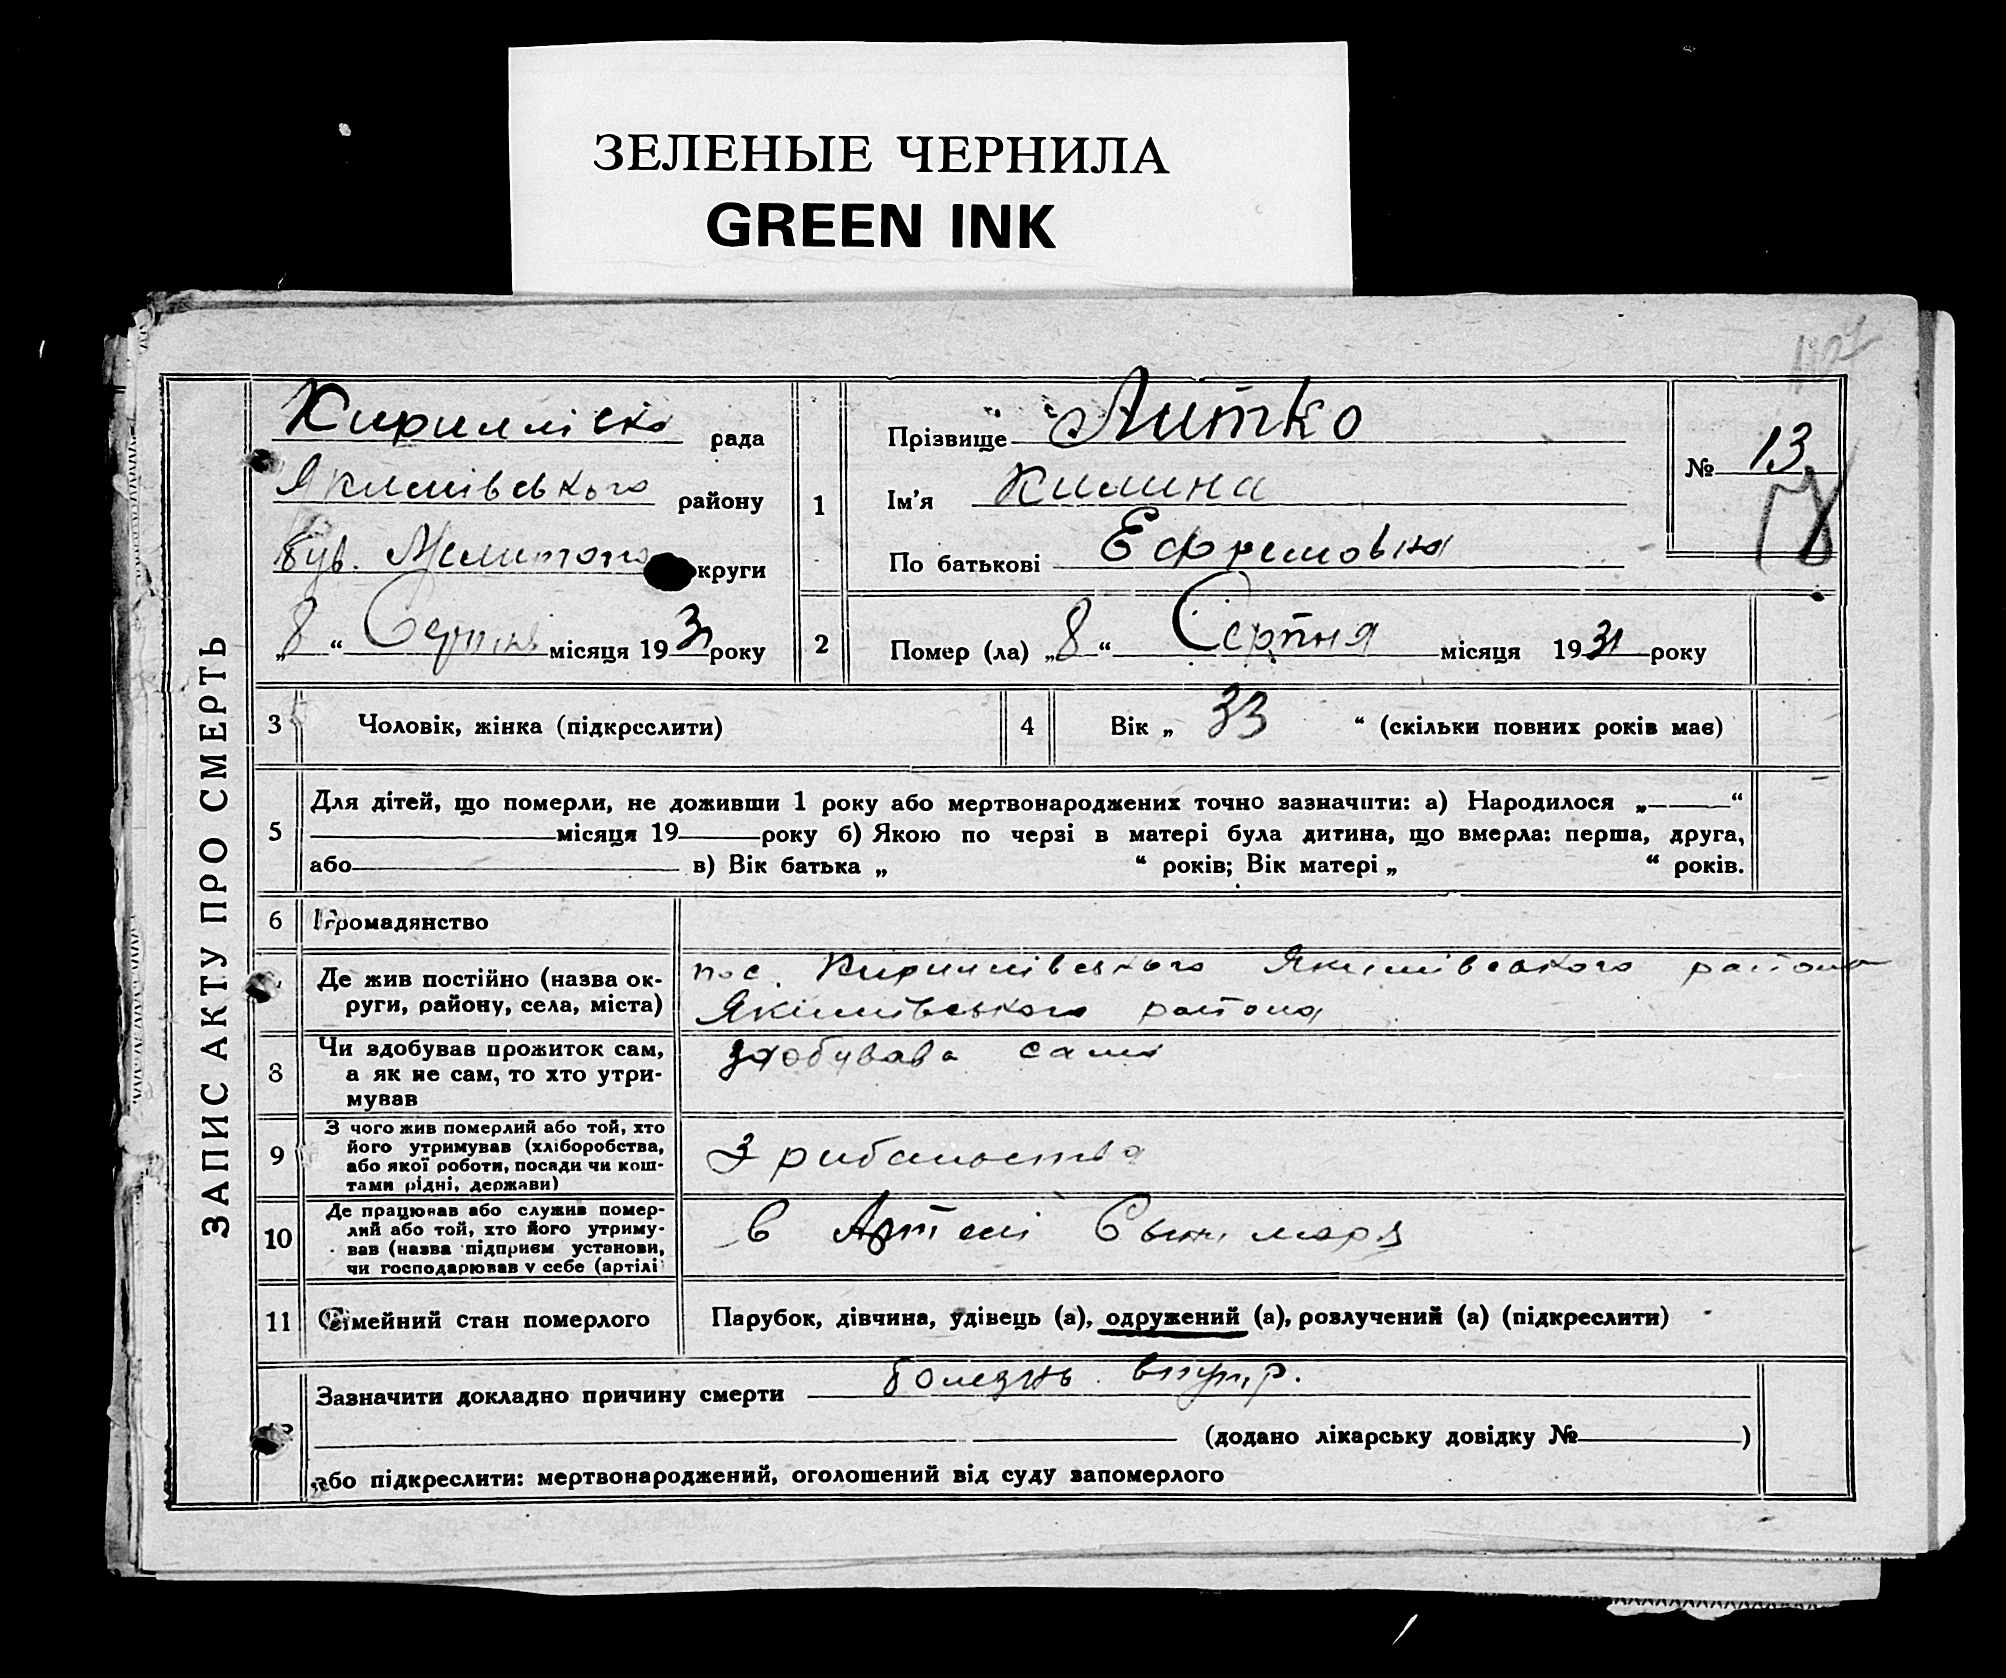 ЗЕЛЕНЫЕ ЧЕРНИЛА
GREEN INK
ЗАПИС АКТУ ПРО СМЕРТЬ
рада
Якимівського району
був. Мелитопо округи
„8“ Серпня місяця 1931 року
1
Прізвище Литко
Ім'я Килина
По батькові Ефремовна
№ 13
2
Помер (ла) „8“ Серпня місяця 1931 року
3 Чоловік, жінка (підкреслити)
4 Вік „ 33 “ (скільки повних років має)
5
Для дітей, що померли, не доживши 1 року або мертвонароджених точно зазначити: а) Народилося „ “
місяця 19 року б) Якою по черзі в матері була дитина, що вмерла: перша, друга,
або в) Вік батька „ “ років; Вік матері „ “ років.
6 Громадянство
Де жив постійно (назва ок-
руги, району, села, міста)
пос. Кирилівського Якимівського района
Якимівського района
8
Чи здобував прожиток сам,
а як не сам, то хто утри-
мував
здобувава сама
9
З чого жив померлий або той, хто
його утримував (хліборобства,
або якої роботи, посади чи кош-
тами рідні, держави)
З рибальства
10
Де працював або служив помер-
лий або той, хто його утриму-
вав (назва підприєм установи,
чи господарював у себе (артілі
в Артелі
11 Сімейний стан померлого
Парубок, дівчина, удівець (а), одружений (а), розлучений (а) (підкреслити)
Зазначити докладно причину смерти болезнь внутр.
(додано лікарську довідку № )
або підкреслити: мертвонароджений, оголошений від суду запомерлого